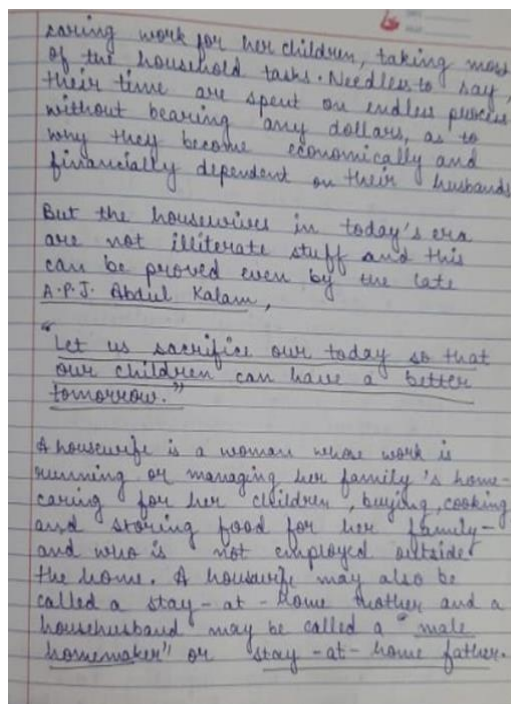 caring work for her children, taking most
of the household tasks. Needless to say,
their time are spent on endless process
without bearing any dollars, as to
why they become economically and
financially dependent on their husbands
But the housewives in today's era
are not illiterate stuff and this
can be proved even by the late
A.P.J. Abdul Kalam,
"Let us sacrifice our today so that
our children can have a better
tomorrow."
A housewife is a woman whose work is
running or managing her family's home-
caring for her children, buying, cooking
and storing food for her family-
and who is not employed outside
the home. A housewife may also be
called a stay-at-home mother and a
househusband may be called a "male
homemaker" or stay-at-home father.